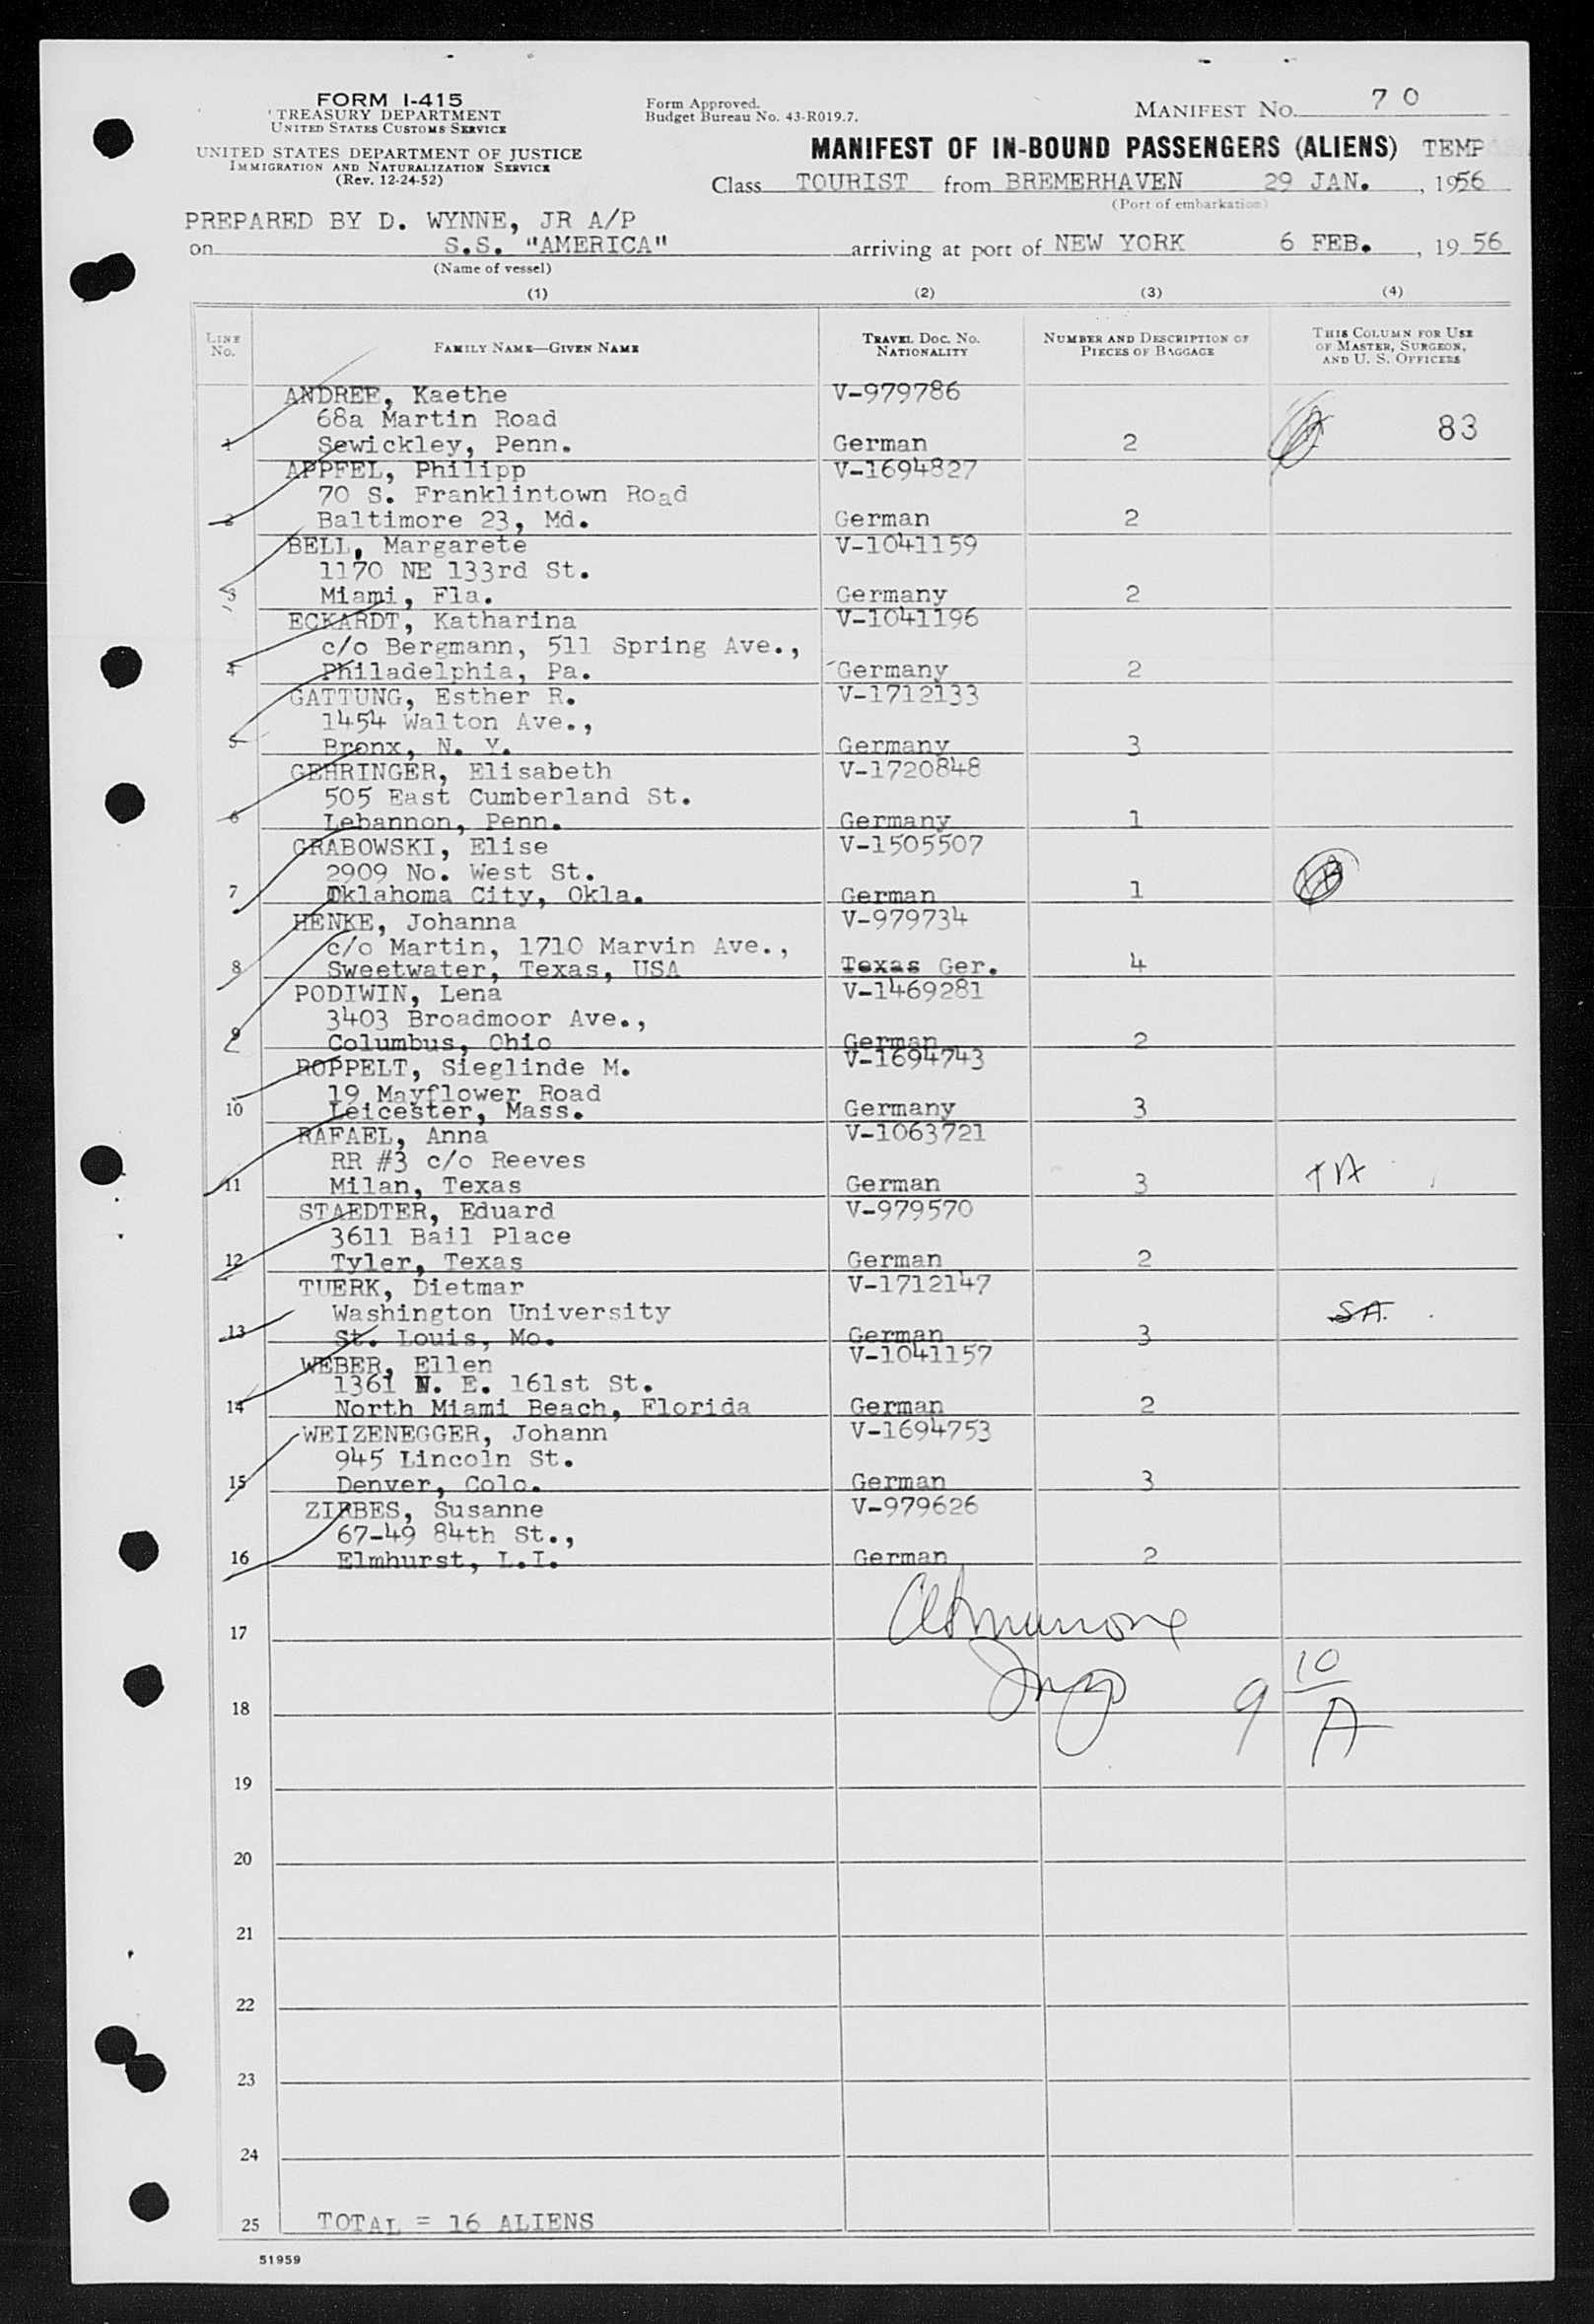 FORM I-415
TREASURY DEPARTMENT
UNITED STATES CUSTOMS SERVICE
UNITED STATES DEPARTMENT OF JUSTICE
IMMIGRATION AND NATURALIZATION SERVICE
(Rev. 12-24-52)
Form Approved.
Budget Bureau No. 43-R019.7.
MANIFEST NO. 70
MANIFEST OF IN-BOUND PASSENGERS (ALIENS) TEMP
Class TOURIST from BREMERHAVEN 29 JAN., 1956
(Port of embarkation)
PREPARED BY D. WYNNE, JR A/P
on S.S. "AMERICA" arriving at port of NEW YORK 6 FEB., 1956
(Name of vessel)
(1) (2) (3) (4)
LINE NO. FAMILY NAME—GIVEN NAME TRAVEL DOC. NO. NATIONALITY NUMBER AND DESCRIPTION OF PIECES OF BAGGAGE THIS COLUMN FOR USE OF MASTER, SURGEON, AND U. S. OFFICERS
ANDREE, Kaethe V-979786
68a Martin Road 83
1 Sewickley, Penn. German 2
APPFEL, Philipp V-1694827
70 S. Franklintown Road
2 Baltimore 23, Md. German 2
BELL, Margarete V-1041159
1170 NE 133rd St.
3 Miami, Fla. Germany 2
ECKARDT, Katharina V-1041196
c/o Bergmann, 511 Spring Ave.,
4 Philadelphia, Pa. Germany 2
GATTUNG, Esther R. V-1712133
1454 Walton Ave.,
5 Bronx, N. Y. Germany 3
GEHRINGER, Elisabeth V-1720848
505 East Cumberland St.
6 Lebannon, Penn. Germany 1
GRABOWSKI, Elise V-1505507
2909 No. West St.
7 Oklahoma City, Okla. German 1
HENKE, Johanna V-979734
c/o Martin, 1710 Marvin Ave.,
8 Sweetwater, Texas, USA Texas Ger. 4
PODIWIN, Lena V-1469281
3403 Broadmoor Ave.,
9 Columbus, Ohio German 2
ROPPELT, Sieglinde M. V-1694743
19 Mayflower Road
10 Leicester, Mass. Germany 3
RAFAEL, Anna V-1063721
RR #3 c/o Reeves
11 Milan, Texas German 3
STAEDTER, Eduard V-979570
3611 Bail Place
12 Tyler, Texas German 2
TUERK, Dietmar V-1712147
Washington University SA.
13 St. Louis, Mo. German 3
WEBER, Ellen V-1041157
1361 N. E. 161st St.
14 North Miami Beach, Florida German 2
WEIZENEGGER, Johann V-1694753
945 Lincoln St.
15 Denver, Colo. German 3
ZIRBES, Susanne V-979626
67-49 84th St.,
16 Elmhurst, L.I. German 2
17
10
18 9 A
19
20
21
22
23
24
25 TOTAL = 16 ALIENS
51959